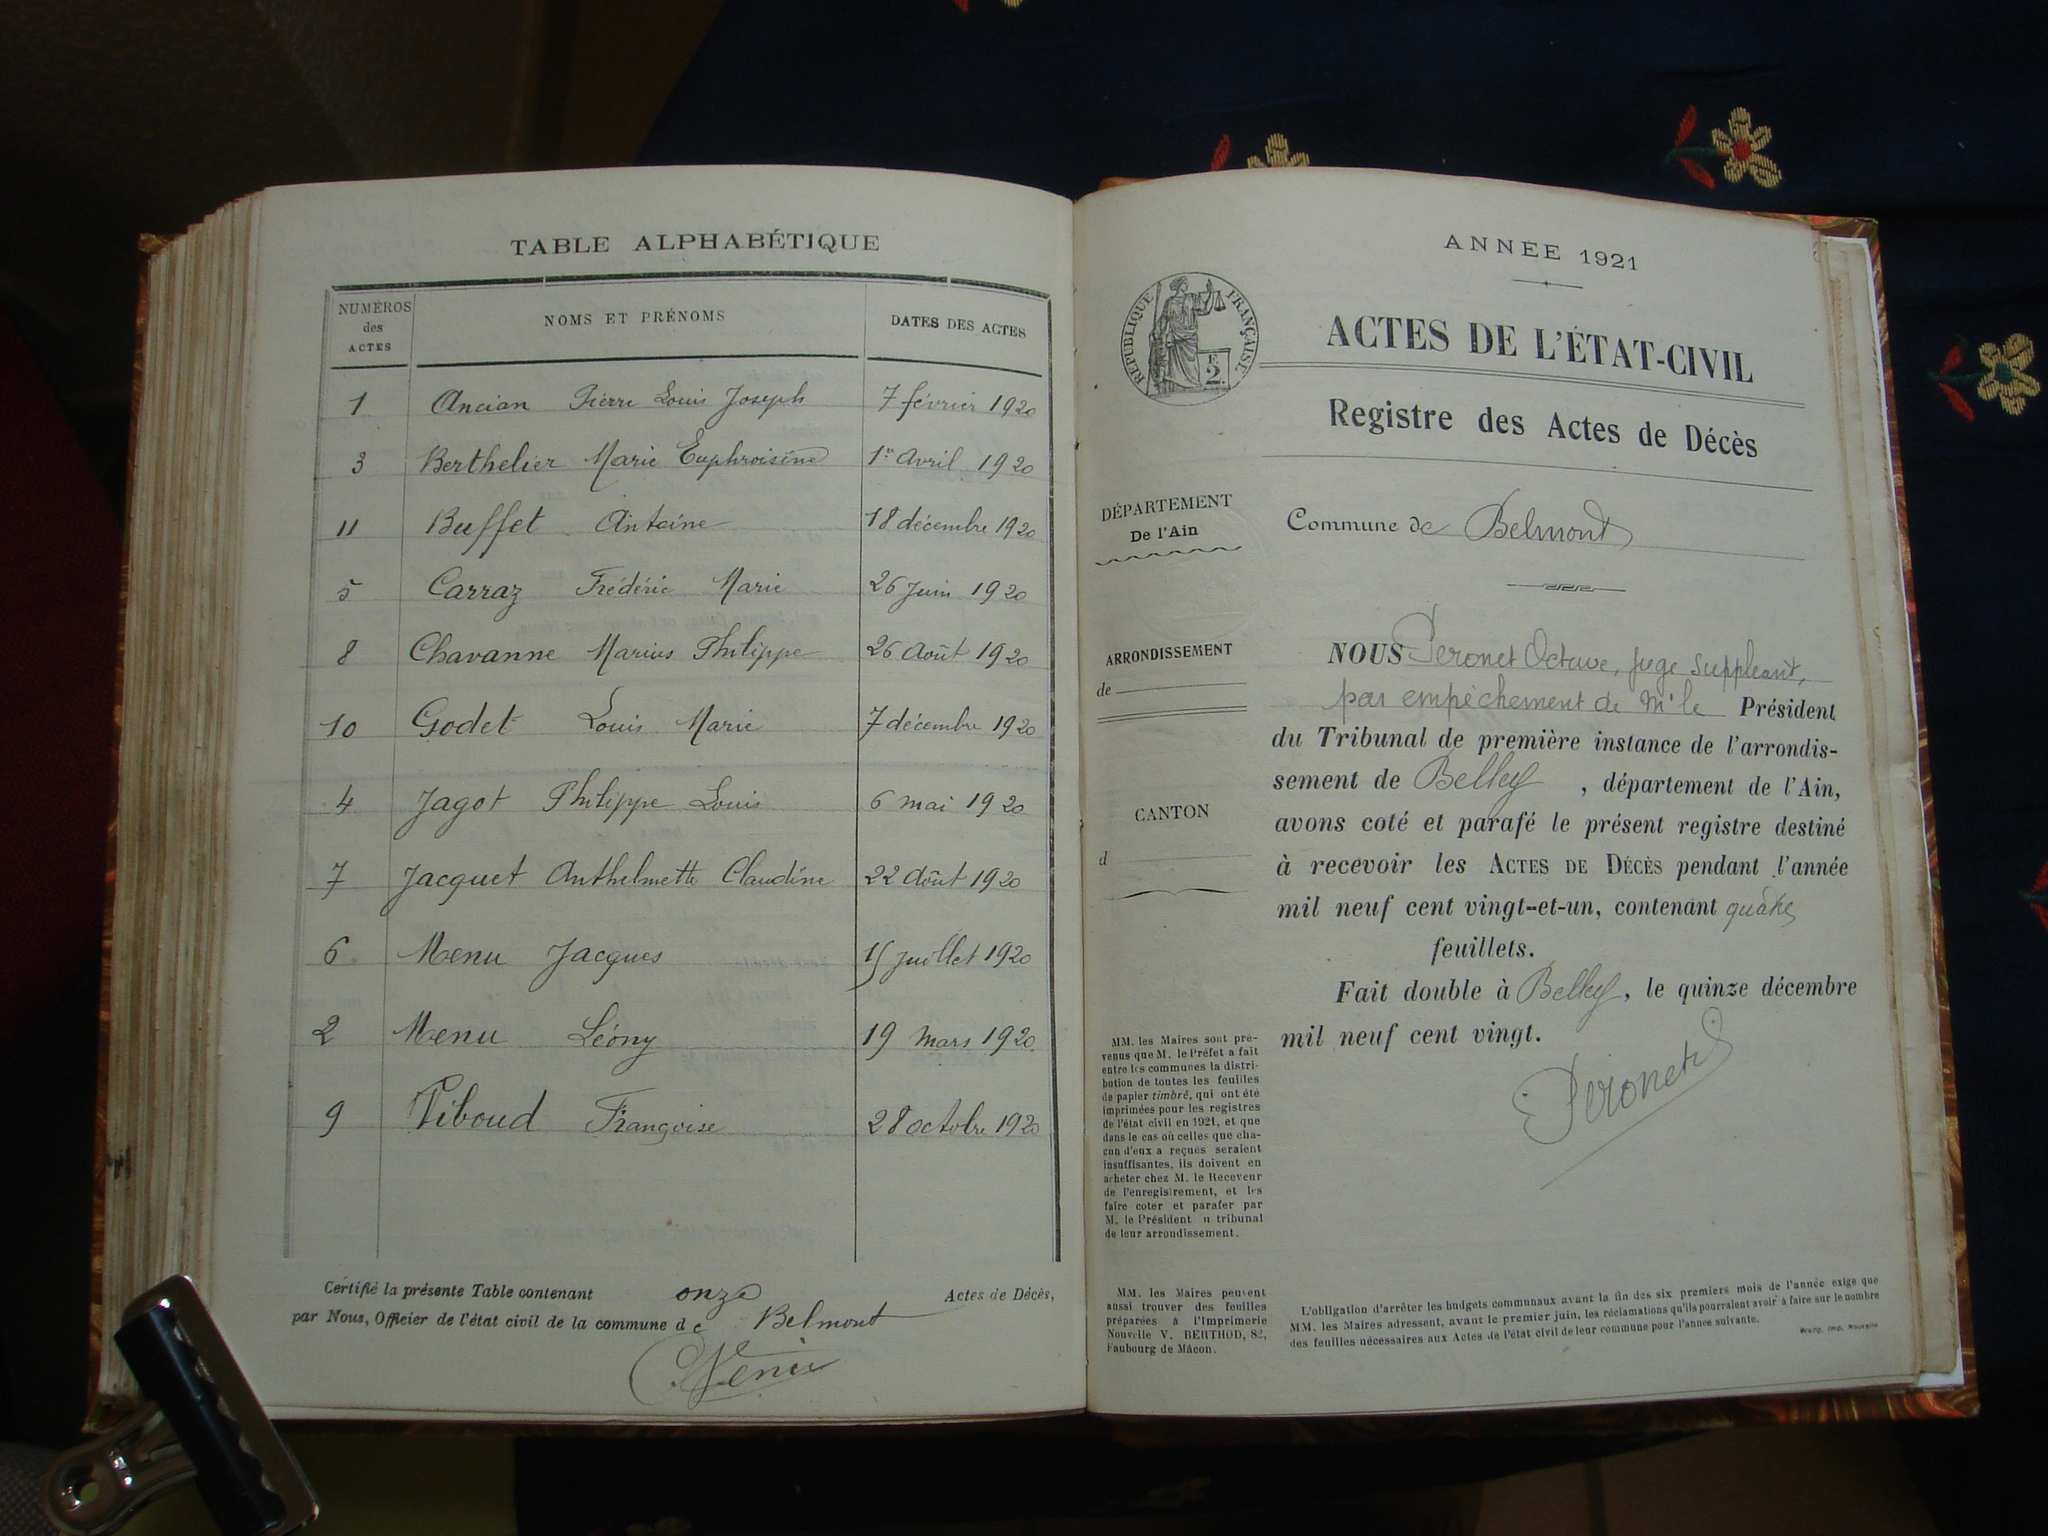 TABLE ALPHABÉTIQUE
NUMÉROS
des
ACTES
NOMS ET PRÉNOMS
DATES DES ACTES
1 Ancian Pierre Louis Joseph 7 février 1920
3 Berthelier Marie Euphroisine 1er avril 1920
11 Buffet Antoine 18 décembre 1920
5 Carraz Frédéric Marie 26 juin 1920
8 Chavanne Marius Philippe 26 août 1920
10 Godet Louis Marie 7 décembre 1920
4 Jagot Philippe Louis 6 mai 1920
7 Jacquet Anthelmette Claudine 22 août 1920
6 Menu Jacques 15 juillet 1920
2 Menu Léony 19 mars 1920
9 Tiboud Françoise 28 octobre 1920
Certifié la présente Table contenant onze Actes de Décès,
par Nous, Officier de l'état civil de la commune de Belmont
ANNÉE 1921
RÉPUBLIQUE FRANÇAISE
2 F.
ACTES DE L'ÉTAT-CIVIL
Registre des Actes de Décès
DÉPARTEMENT
De l'Ain
Commune de Belmont
ARRONDISSEMENT
de
CANTON
d
NOUS Peronet Octave, juge suppléant,
par empêchement de Mr le Président
du Tribunal de première instance de l'arrondis-
sement de Belley, département de l'Ain,
avons coté et parafé le présent registre destiné
à recevoir les ACTES DE DÉCÈS pendant l'année
mil neuf cent vingt-et-un, contenant quatre
feuillets.
Fait double à Belley, le quinze décembre
mil neuf cent vingt.
Peronet
MM. les Maires sont pré-
venus que M. le Préfet a fait
entre les communes la distri-
bution de toutes les feuilles
de papier timbré, qui ont été
imprimées pour les registres
de l'état civil en 1921, et que
dans le cas où celles que cha-
cun d'eux a reçues seraient
insuffisantes, ils doivent en
acheter chez M. le Receveur
de l'enregistrement, et les
faire coter et parafer par
M. le Président u tribunal
de leur arrondissement.
MM. les Maires peuvent
aussi trouver des feuilles
préparées à l'Imprimerie
Nouvelle V. BERTHOD, 82,
Faubourg de Mâcon.
L'obligation d'arrêter les budgets communaux avant la fin des six premiers mois de l'année exige que
MM. les Maires adressent, avant le premier juin, les réclamations qu'ils pourraient avoir à faire sur le nombre
des feuilles nécessaires aux Actes de l'état civil de leur commune pour l'année suivante.
Bourg, Imp. Nouvelle